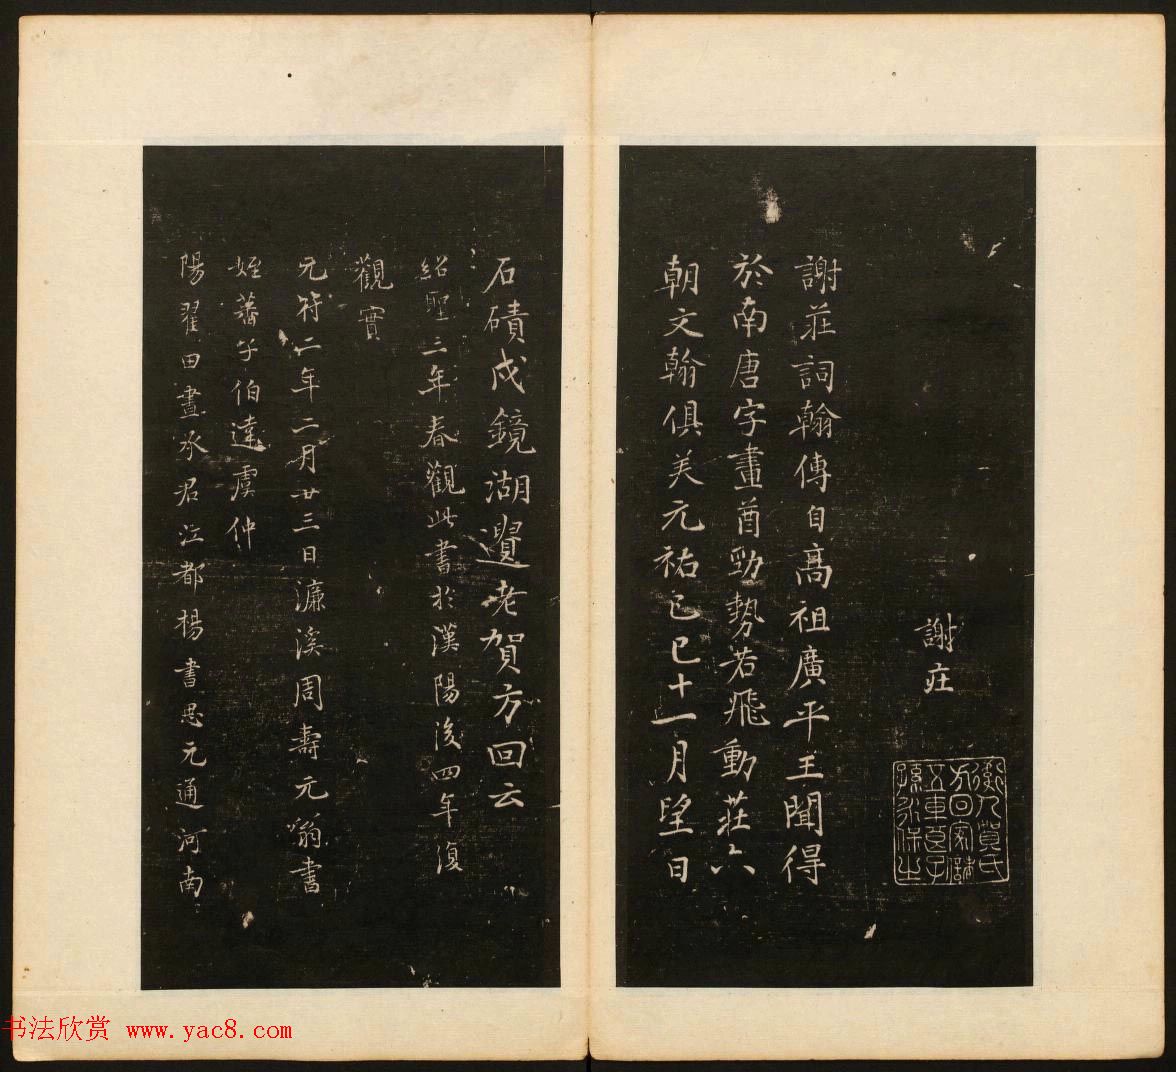 謝莊
謝莊詞翰傳自高祖廣平王聞得
於南唐字畫酋勁勢若飛動莊六
朝文翰俱美元祐己巳十一月望日
石磧戍鏡湖遺老賀方回云
紹聖二年春觀此書於漢陽後四年復
觀實
元符二年二月廿三日濂溪周壽元翁書
姪蕃子伯達虞仲
陽翟田晝承君江都楊書思元通河南
书法欣赏 www.yac8.com